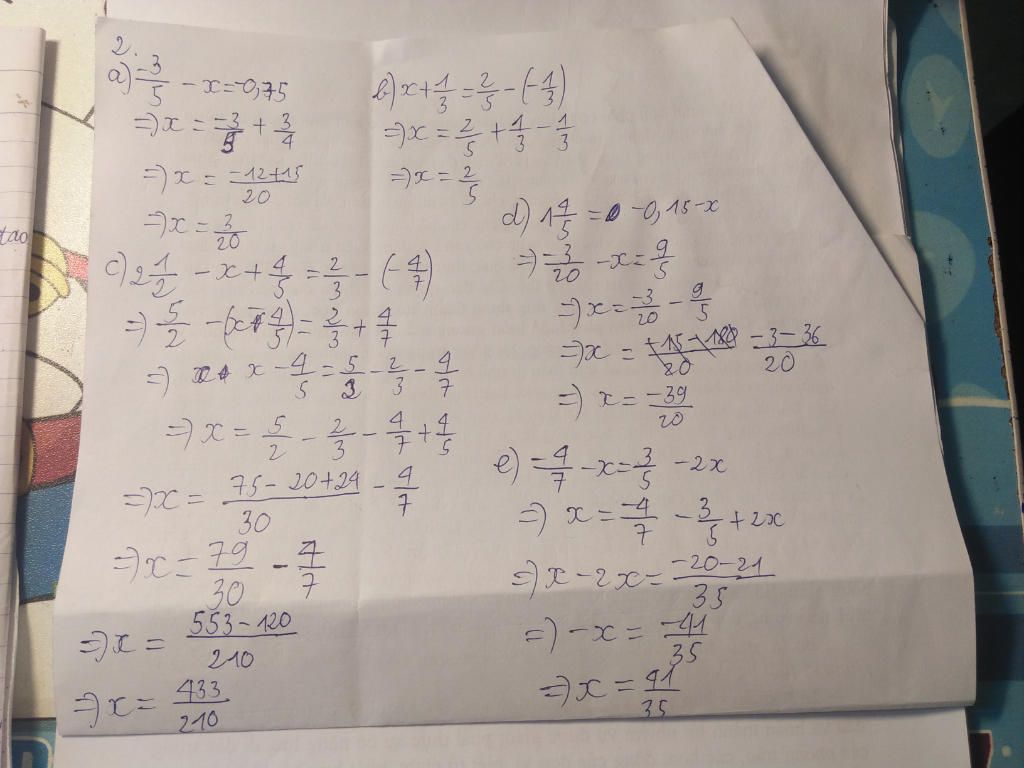 2.
a) -3/5 - x = -0,75
=> x = -3/5 + 3/4
=> x = -12+15/20
=> x = 3/20
b) x + 1/3 = 2/5 - (-1/3)
=> x = 2/5 + 1/3 - 1/3
=> x = 2/5
c) 2 1/2 - x + 4/5 = 2/3 - (-4/7)
=> 5/2 - (x - 4/5) = 2/3 + 4/7
=> x - 4/5 = 5/2 - 2/3 - 4/7
=> x = 5/2 - 2/3 - 4/7 + 4/5
=> x = 75 - 20 + 24/30 - 4/7
=> x = 79/30 - 4/7
=> x = 553 - 120/210
=> x = 433/210
d) 1 4/5 = -0,15 - x
=> -3/20 - x = 9/5
=> x = -3/20 - 9/5
=> x = -3 - 36/20
=> x = -39/20
e) -4/7 - x = 3/5 - 2x
=> x = -4/7 - 3/5 + 2x
=> x - 2x = -20 - 21/35
=> -x = -41/35
=> x = 41/35
tao